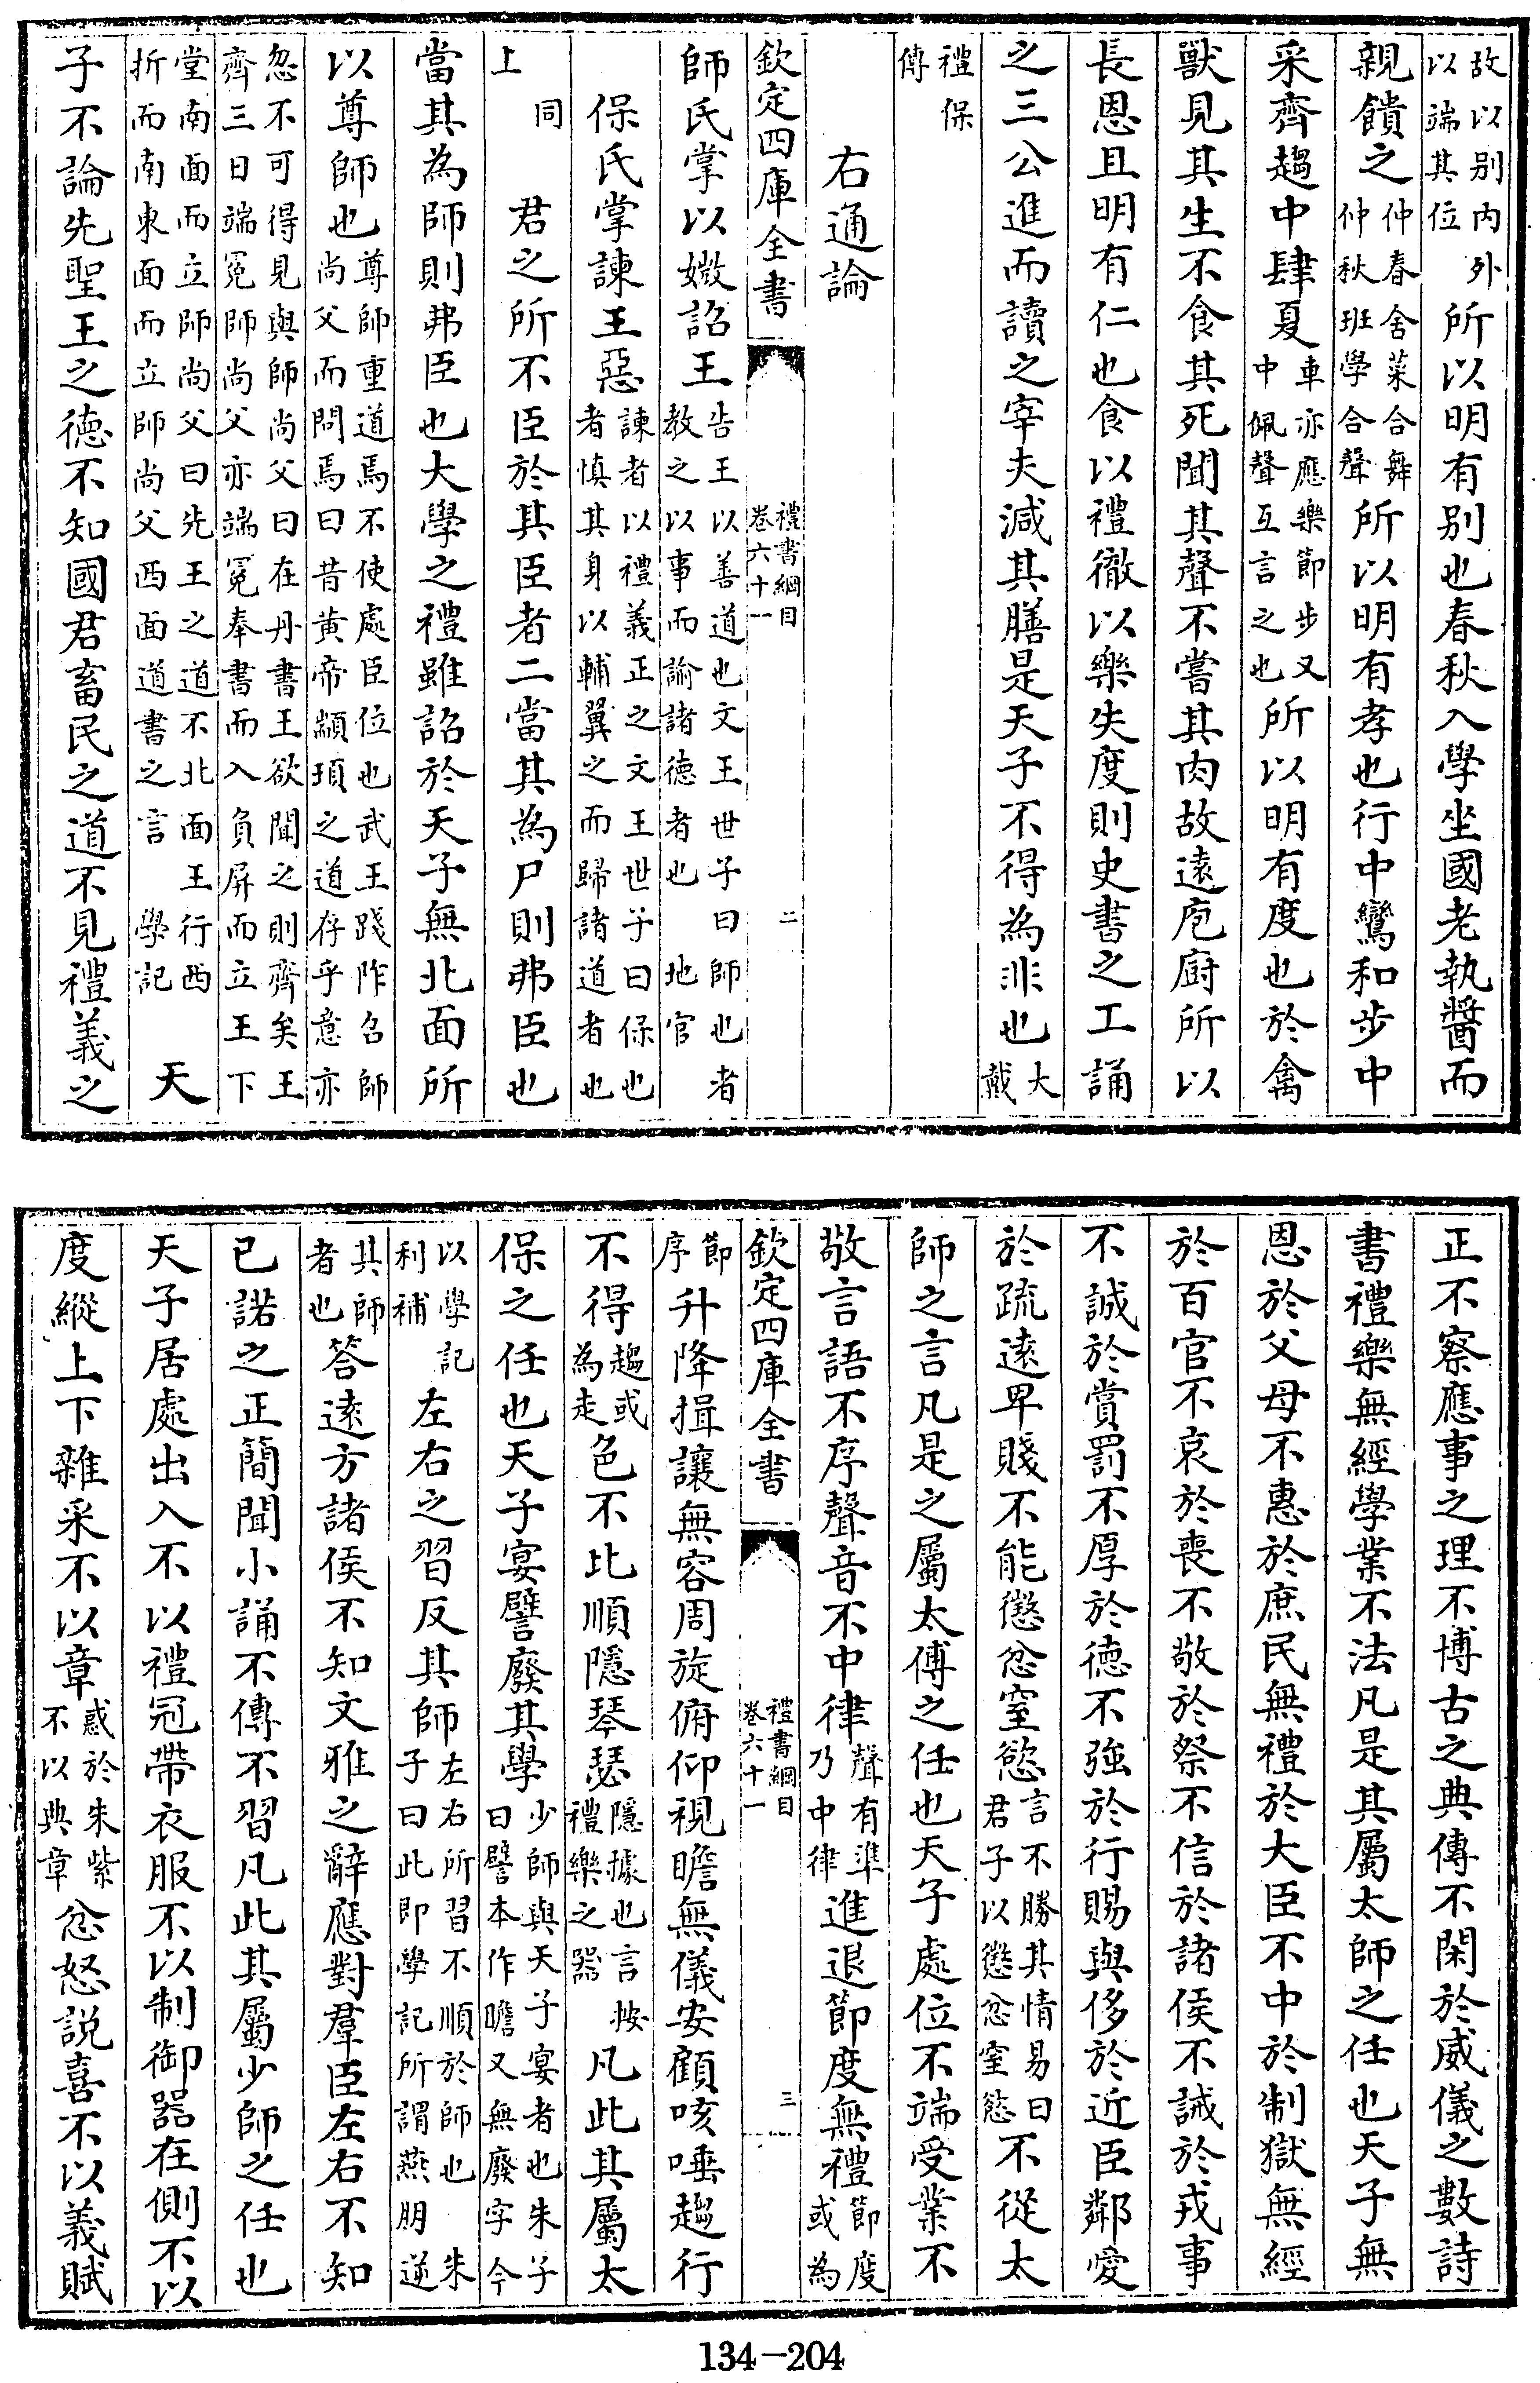 故以别内外以端其位所以明有别也春秋入學坐國老執醬而
親饋之仲春舍菜合舞仲秋班學合聲所以明有孝也行中鸞和步中
采齊趨中肆夏車亦應樂節步又中佩聲互言之也所以明有度也於禽
獸見其生不食其死聞其聲不嘗其肉故遠庖厨所以
長恩且明有仁也食以禮徹以樂失度則史書之工誦
之三公進而讀之宰夫減其膳是天子不得為非也大戴
禮保傅
右通論
欽定四庫全書 禮書綱目 卷六十一 二
師氏掌以媺詔王告王以善道也文王世子曰師也者教之以事而諭諸德者也 地官
保氏掌諫王惡諫者以禮義正之文王世子曰保也者慎其身以輔翼之而歸諸道者也
同上 君之所不臣於其臣者二當其為尸則弗臣也
當其為師則弗臣也大學之禮雖詔於天子無北面所
以尊師也尊師重道焉不使處臣位也武王踐阼召師尚父而問焉曰昔黄帝顓頊之道存乎意亦
忽不可得見與師尚父曰在丹書王欲聞之則齊矣王齊三日端冕師尚父亦端冕奉書而入負屏而立王下
堂南面而立師尚父曰先王之道不北面王行西折而南東面而立師尚父西面道書之言 學記 天
子不論先聖王之德不知國君畜民之道不見禮義之
正不察應事之理不博古之典傳不閑於威儀之數詩
書禮樂無經學業不法凡是其屬太師之任也天子無
恩於父母不惠於庶民無禮於大臣不中於制獄無經
於百官不哀於喪不敬於祭不信於諸侯不誡於戎事
不誠於賞罰不厚於德不強於行賜與侈於近臣鄰愛
於疏遠卑賤不能懲忿窒慾言不勝其情易曰君子以懲忿窒慾不從太
師之言凡是之屬太傅之任也天子處位不端受業不
敬言語不序聲音不中律聲有準乃中律進退節度無禮節度或為
欽定四庫全書 禮書綱目 卷六十一 三
節序升降揖讓無容周旋俯仰視瞻無儀安顧咳唾趨行
不得趨或為走色不比順隱琴瑟隱據也言按禮樂之器凡此其屬太
保之任也天子宴譬廢其學少師與天子宴者也朱子曰譬本作瞻又無廢字今
以學記利補左右之習反其師左右所習不順於師也朱子曰此即學記所謂燕朋逆
其師者也答遠方諸侯不知文雅之辭應對羣臣左右不知
已諾之正簡聞小誦不傳不習凡此其屬少師之任也
天子居處出入不以禮冠帶衣服不以制御器在側不以
度縱上下雜采不以章惑於朱紫不以典章忿怒説喜不以義賦
134-204